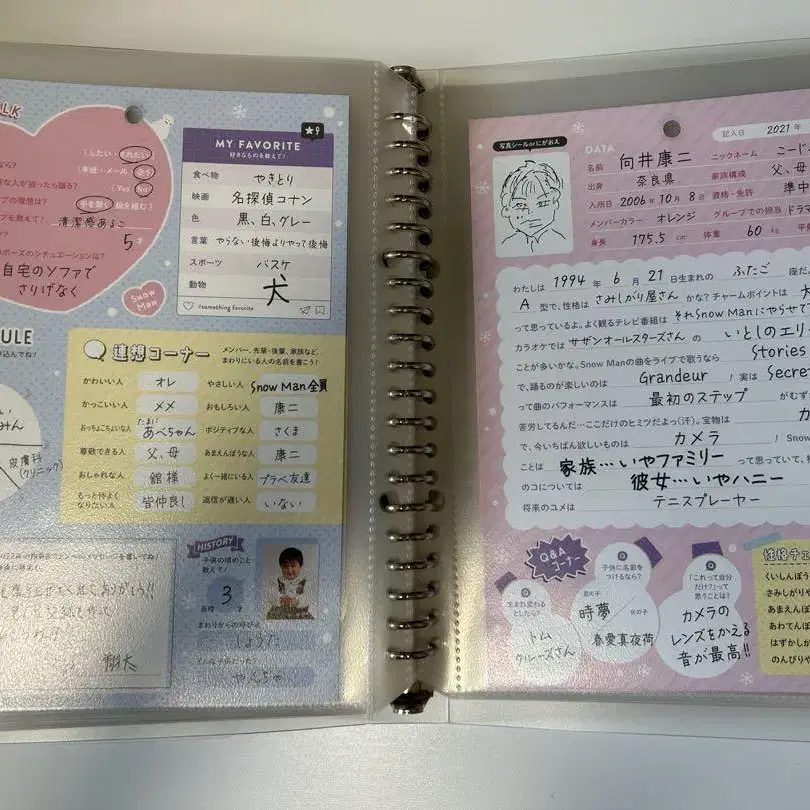 LK
(したい・されたい)
(手紙・メール 会う)
(Yes No)
(手を繋ぐ 腕を組む)
清潔感あるこ
5
自宅のソファで
さりげなく
Snow Man
★9
MY FAVORITE
好きなものを教えて!
食べ物 やきとり
映画 名探偵コナン
色 黒、白、グレー
言葉 やらない後悔よりやって後悔
スポーツ バスケ
動物 犬
#something favorite
ULE
皮膚科
(クリニック)
連想コーナー
メンバー、先輩・後輩、家族など、
まわりにいる人の名前を書こう!
かわいい人 オレ やさしい人 Snow Man全員
かっこいい人 メメ おもしろい人 康二
おっちょこちょいな人 たまに あべちゃん ポジティブな人 さくま
尊敬できる人 父、母 あまえんぼうな人 康二
おしゃれな人 舘様 よく一緒にいる人 プラベ友達
もっと仲よく
なりたい人 皆仲良し 返信が遅い人 いない
翔太
HISTORY
子供の頃のこと
教えて!
3
まわりからの呼び名
しょうた
どんな子供だった?
やんちゃ
写真シールorにがおえ
DATA
記入日 2021年
名前 向井康二 ニックネーム こーじ
出身 奈良県 家族構成 父、母
入所日 2006年10月8日 資格・免許 準中
メンバーカラー オレンジ グループでの担当 ドラマ
身長 175.5 cm 体重 60 kg
わたしは 1994 年 6 月 21 日生まれの ふたご 座だ
A 型で、性格は さみしがり屋さん かな?チャームポイントは
って思っているよ。よく観るテレビ番組は それSnow Manにやらせて
カラオケでは サザンオールスターズさん の いとしのエリー
ことが多いかな。Snow Manの曲をライブで歌うなら Stories
で、踊るのが楽しいのは Grandeur !実は Secret
って曲のパフォーマンスは 最初のステップ がむず
苦労してるんだ…ここだけのヒミツだよっ(汗)。宝物は カ
で、今いちばん欲しいものは カメラ !Snow
ことは 家族…いやファミリー って思っていて、
のコについては 彼女…いやハニー
将来のユメは テニスプレーヤー
Q&A
コーナー
Q
生まれ変わる
としたら?
トム
クルーズさん
Q
子供に名前を
つけるなら?
男の子
時夢
女の子
春愛真夜荷
Q
「これって自分
だけ?」って
思うことは?
カメラの
レンズをかえる
音が最高!!
性格チェ
くいしんぼう
さみしがりや
あまえんぼ
あわてんぼ
はずかしが
のんびりや